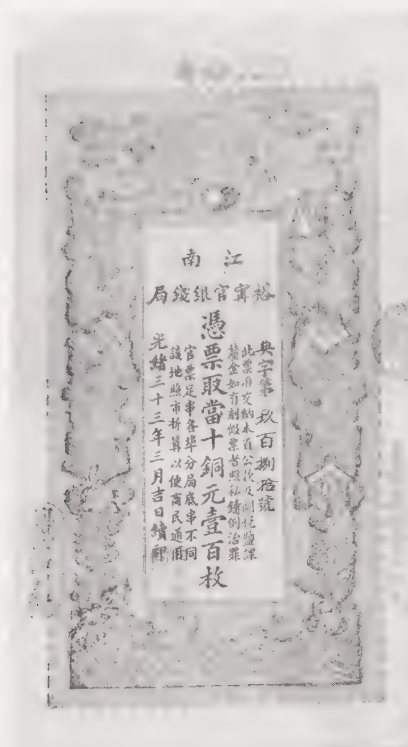 江南
裕寧官銀錢局
典字第玖百捌拾號
此票準交納本省公款及關稅鹽課
釐金如有刻假票者照私鑄例治罪
憑票取當十銅元壹百枚
官票足串各埠分局底串不同
該地照市折算以便商民通用
光緒三十三年三月吉日續